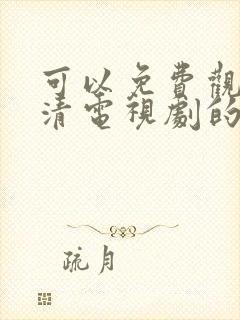 可以免費觀
清電視劇的
疏月